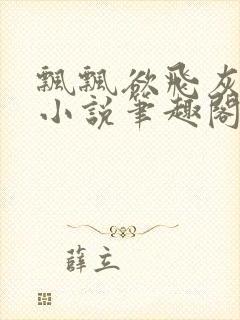 飄飄欲飛灰
小說筆趣閣
薛立